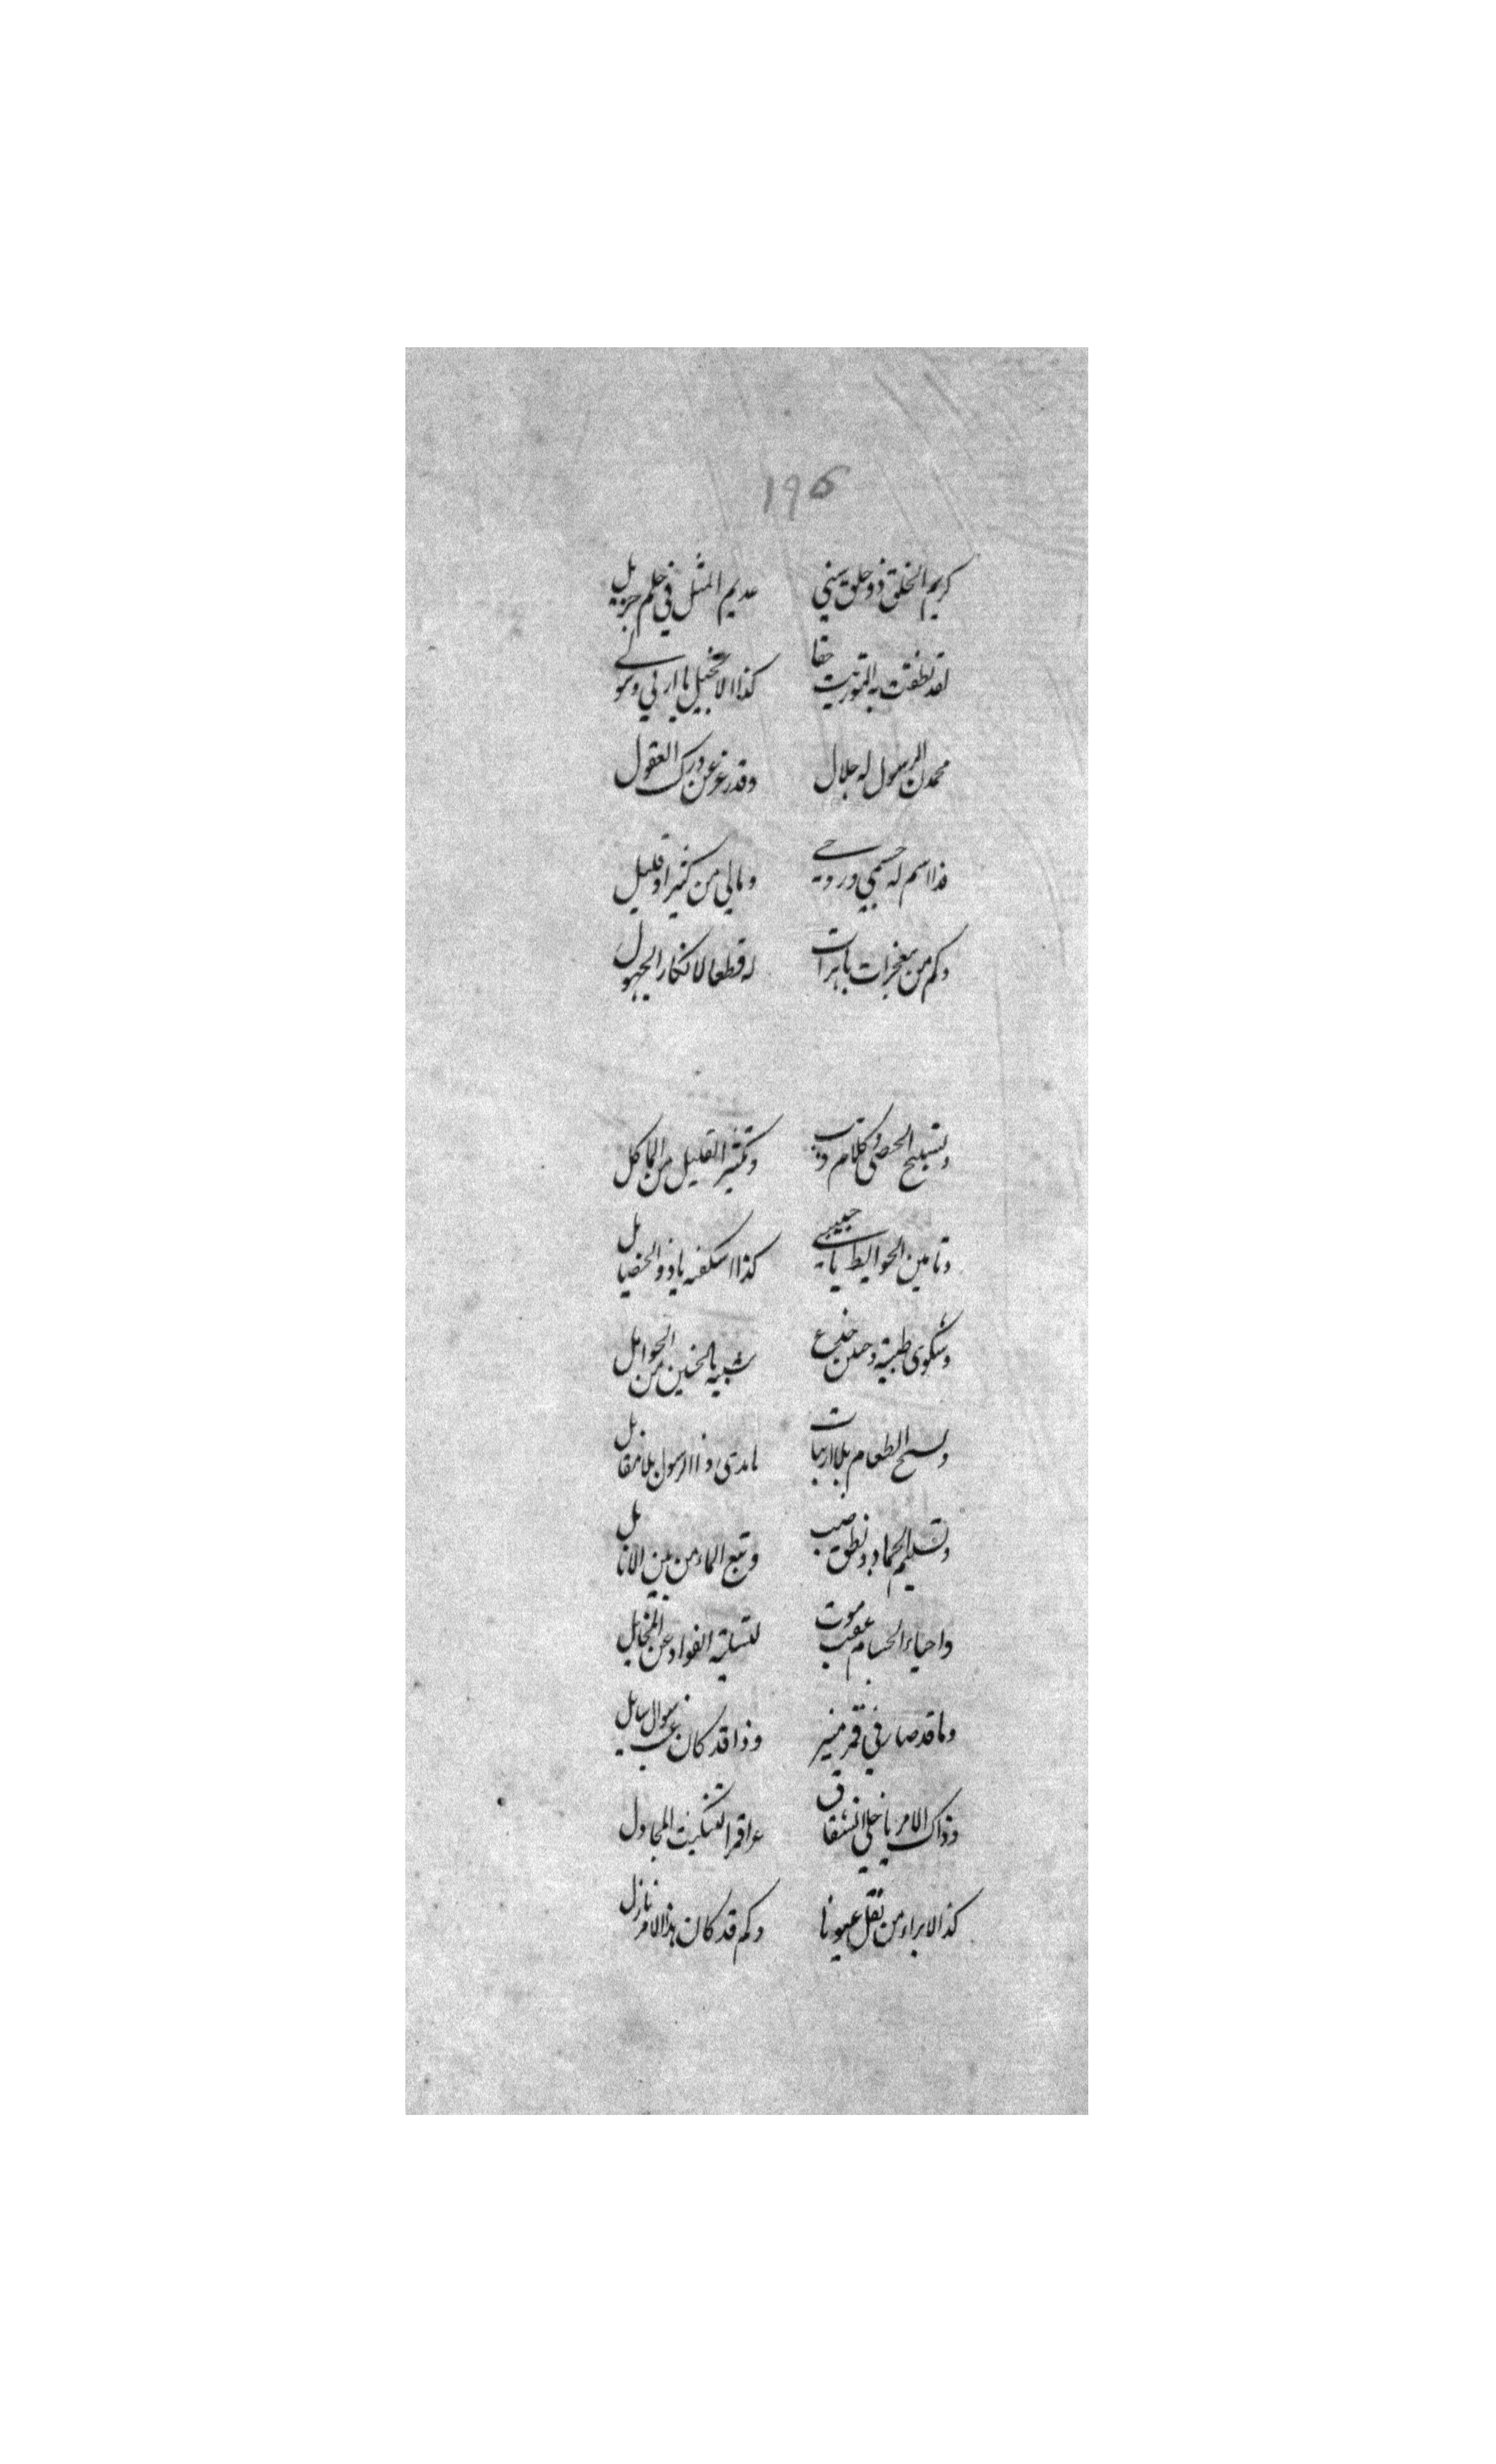 ١٩٥
كريم الخلق ذو خلق سني عديم المثل في حلم جزيل
لقد نطقت به التوريت حقا كذا الانجيل يا اربي وسولي
محمدن الرسول له جلال وقدر عز عن درك العقول
فذا اسم له جسمي وروحي ومالي من كثير او قليل
وكم من معجزات باهرات له قطعا لانكار الجهول
وتسبيح الحصى وكلام ذيب وتكثير القليل من الماكل
وتامين الحوايط يا حبيبي كذا اسكفه ياذو الخصايل
وشكوى ظبية وحنين جذع شبيه بالحنين من الحوامل
وتسبيح الطعام بلا ارتياب لدى ذا الرسول بلا مقابل
وتسليم الجماد ونطق ضب ونبع الماء من بين الانامل
واحياء لجسام عقيب موت لتسلية الفواد عن المخايل
وما قد صار في قمر منير وذا قد كان عقيب سوال سايل
وذاك الامر يا خلي انشقاق لتبكيت المجادل
كذا الابراء من تفل عيونا وكم قد كان هذا الامر نازل